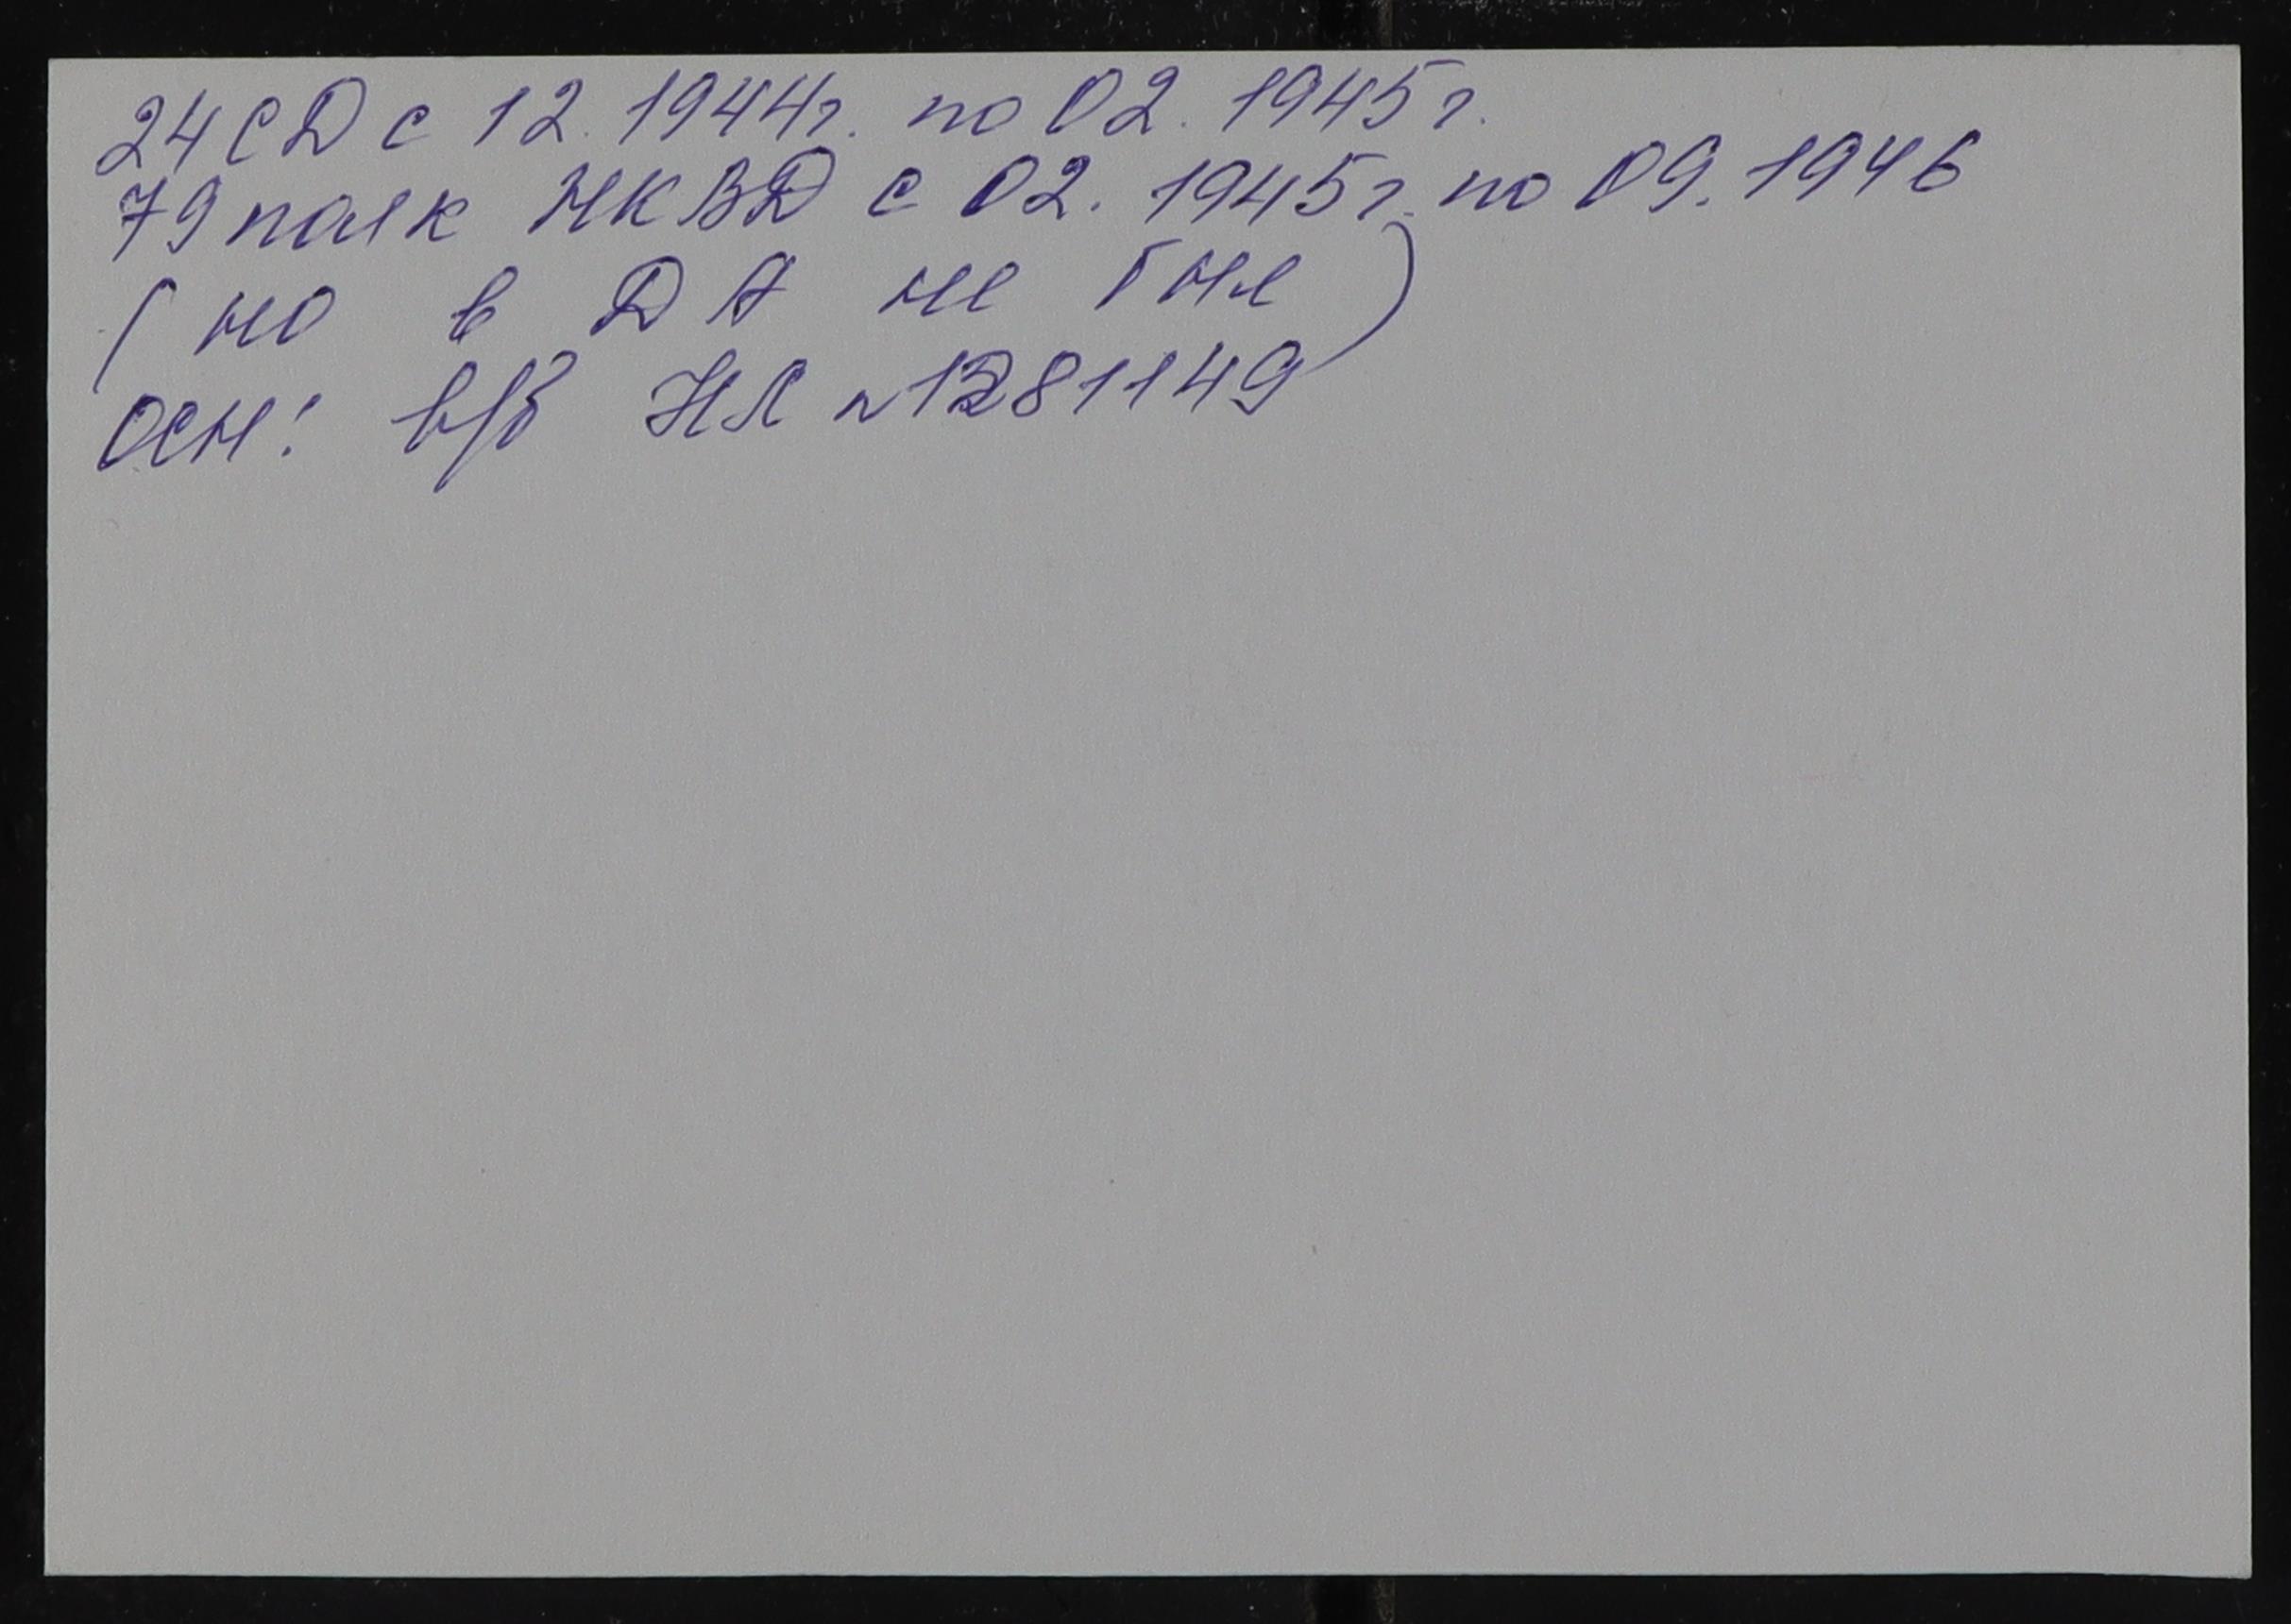 24 СД с 12. 1944г. по 02. 1945г.
79 полк НКВД с 02. 1945г. по 09. 1946
(но в ДА не был)
осн: в/б НЛ № 1281149